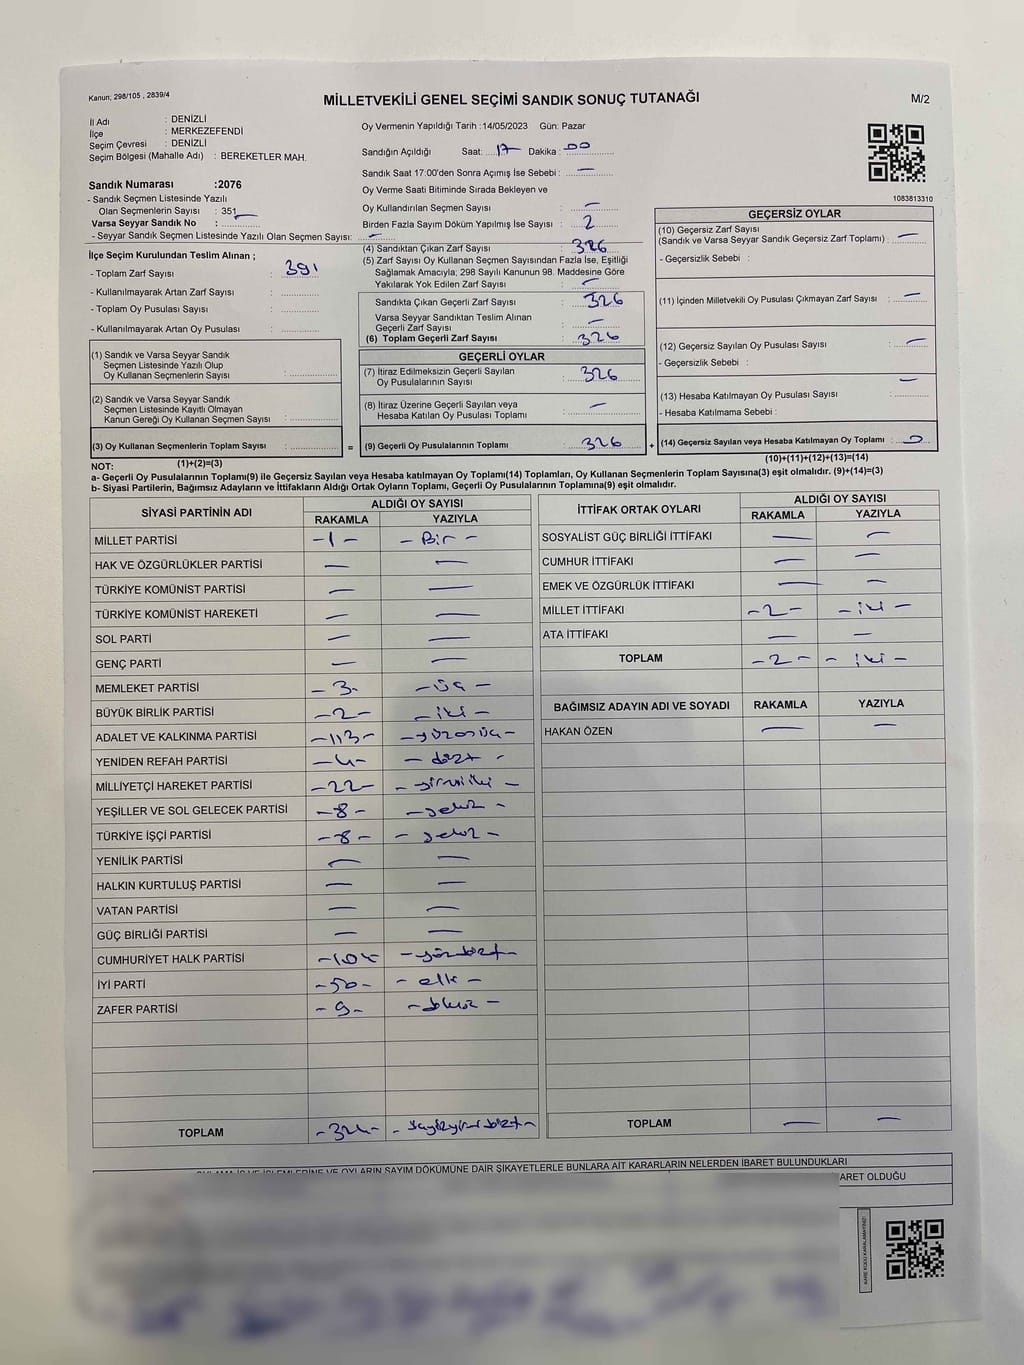 Kanun; 298/105 , 2839/4
MİLLETVEKİLİ GENEL SEÇİMİ SANDIK SONUÇ TUTANAĞI
M/2
İl Adı : DENİZLİ
İlçe : MERKEZEFENDİ
Seçim Çevresi : DENİZLİ
Seçim Bölgesi (Mahalle Adı) : BEREKETLER MAH.
Oy Vermenin Yapıldığı Tarih :14/05/2023 Gün: Pazar
Sandığın Açıldığı Saat: 17 Dakika: 00
Sandık Saat 17:00'den Sonra Açımış İse Sebebi : —
Oy Verme Saati Bitiminde Sırada Bekleyen ve
Oy Kullandırılan Seçmen Sayısı : —
Birden Fazla Sayım Döküm Yapılmış İse Sayısı : 2
1083813310
Sandık Numarası :2076
- Sandık Seçmen Listesinde Yazılı
Olan Seçmenlerin Sayısı : 351
Varsa Seyyar Sandık No :
- Seyyar Sandık Seçmen Listesinde Yazılı Olan Seçmen Sayısı: —
İlçe Seçim Kurulundan Teslim Alınan ;
- Toplam Zarf Sayısı : 391
- Kullanılmayarak Artan Zarf Sayısı :
- Toplam Oy Pusulası Sayısı :
- Kullanılmayarak Artan Oy Pusulası :
(1) Sandık ve Varsa Seyyar Sandık
Seçmen Listesinde Yazılı Olup
Oy Kullanan Seçmenlerin Sayısı :
(2) Sandık ve Varsa Seyyar Sandık
Seçmen Listesinde Kayıtlı Olmayan
Kanun Gereği Oy Kullanan Seçmen Sayısı :
(3) Oy Kullanan Seçmenlerin Toplam Sayısı : =
(1)+(2)=(3)
(4) Sandıktan Çıkan Zarf Sayısı : 326
(5) Zarf Sayısı Oy Kullanan Seçmen Sayısından Fazla İse, Eşitliği
Sağlamak Amacıyla; 298 Sayılı Kanunun 98. Maddesine Göre
Yakılarak Yok Edilen Zarf Sayısı : —
Sandıkta Çıkan Geçerli Zarf Sayısı : 326
Varsa Seyyar Sandıktan Teslim Alınan
Geçerli Zarf Sayısı : —
(6) Toplam Geçerli Zarf Sayısı : 326
GEÇERLİ OYLAR
(7) İtiraz Edilmeksizin Geçerli Sayılan
Oy Pusulalarının Sayısı : 326
(8) İtiraz Üzerine Geçerli Sayılan veya
Hesaba Katılan Oy Pusulası Toplamı : —
(9) Geçerli Oy Pusulalarının Toplamı : 326 +
GEÇERSİZ OYLAR
(10) Geçersiz Zarf Sayısı
(Sandık ve Varsa Seyyar Sandık Geçersiz Zarf Toplamı) : —
- Geçersizlik Sebebi :
(11) İçinden Milletvekili Oy Pusulası Çıkmayan Zarf Sayısı : —
(12) Geçersiz Sayılan Oy Pusulası Sayısı : —
- Geçersizlik Sebebi :
(13) Hesaba Katılmayan Oy Pusulası Sayısı : —
- Hesaba Katılmama Sebebi :
(14) Geçersiz Sayılan veya Hesaba Katılmayan Oy Toplamı : 0
(10)+(11)+(12)+(13)=(14)
NOT:
a- Geçerli Oy Pusulalarının Toplamı(9) ile Geçersiz Sayılan veya Hesaba katılmayan Oy Toplamı(14) Toplamları, Oy Kullanan Seçmenlerin Toplam Sayısına(3) eşit olmalıdır. (9)+(14)=(3)
b- Siyasi Partilerin, Bağımsız Adayların ve İttifakların Aldığı Ortak Oyların Toplamı, Geçerli Oy Pusulalarının Toplamına(9) eşit olmalıdır.
SİYASİ PARTİNİN ADI ALDIĞI OY SAYISI
RAKAMLA YAZIYLA
MİLLET PARTİSİ -1- - Bir -
HAK VE ÖZGÜRLÜKLER PARTİSİ — —
TÜRKİYE KOMÜNİST PARTİSİ — —
TÜRKİYE KOMÜNİST HAREKETİ — —
SOL PARTİ — —
GENÇ PARTİ — —
MEMLEKET PARTİSİ -3- -üç-
BÜYÜK BİRLİK PARTİSİ -2- -iki-
ADALET VE KALKINMA PARTİSİ -113- -yüzonüç-
YENİDEN REFAH PARTİSİ -4- - dört -
MİLLİYETÇİ HAREKET PARTİSİ -22- - yirmiiki -
YEŞİLLER VE SOL GELECEK PARTİSİ -8- -sekiz-
TÜRKİYE İŞÇİ PARTİSİ -8- - sekiz -
YENİLİK PARTİSİ — —
HALKIN KURTULUŞ PARTİSİ — —
VATAN PARTİSİ — —
GÜÇ BİRLİĞİ PARTİSİ — —
CUMHURİYET HALK PARTİSİ -104- -yüzdört-
İYİ PARTİ -50- - elli -
ZAFER PARTİSİ -9- -dokuz-
TOPLAM -324- - üçyüzyirmidört-
İTTİFAK ORTAK OYLARI ALDIĞI OY SAYISI
RAKAMLA YAZIYLA
SOSYALİST GÜÇ BİRLİĞİ İTTİFAKI — —
CUMHUR İTTİFAKI — —
EMEK VE ÖZGÜRLÜK İTTİFAKI — —
MİLLET İTTİFAKI -2- -iki-
ATA İTTİFAKI — —
TOPLAM -2- - iki-
BAĞIMSIZ ADAYIN ADI VE SOYADI RAKAMLA YAZIYLA
HAKAN ÖZEN — —
TOPLAM — —
OYLARIN SAYIM DÖKÜMÜNE DAİR ŞİKAYETLERLE BUNLARA AİT KARARLARIN NELERDEN İBARET BULUNDUKLARI
ARET OLDUĞU